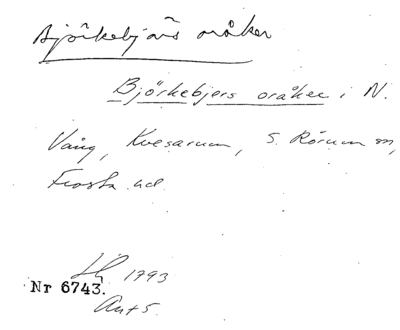 Björkebjärs oråker
Björkebjers oråker i N.
Vång, Kvesarum, S. Rörum sn,
Frosta hd.
1793
Nr 6743.
Ant 5.